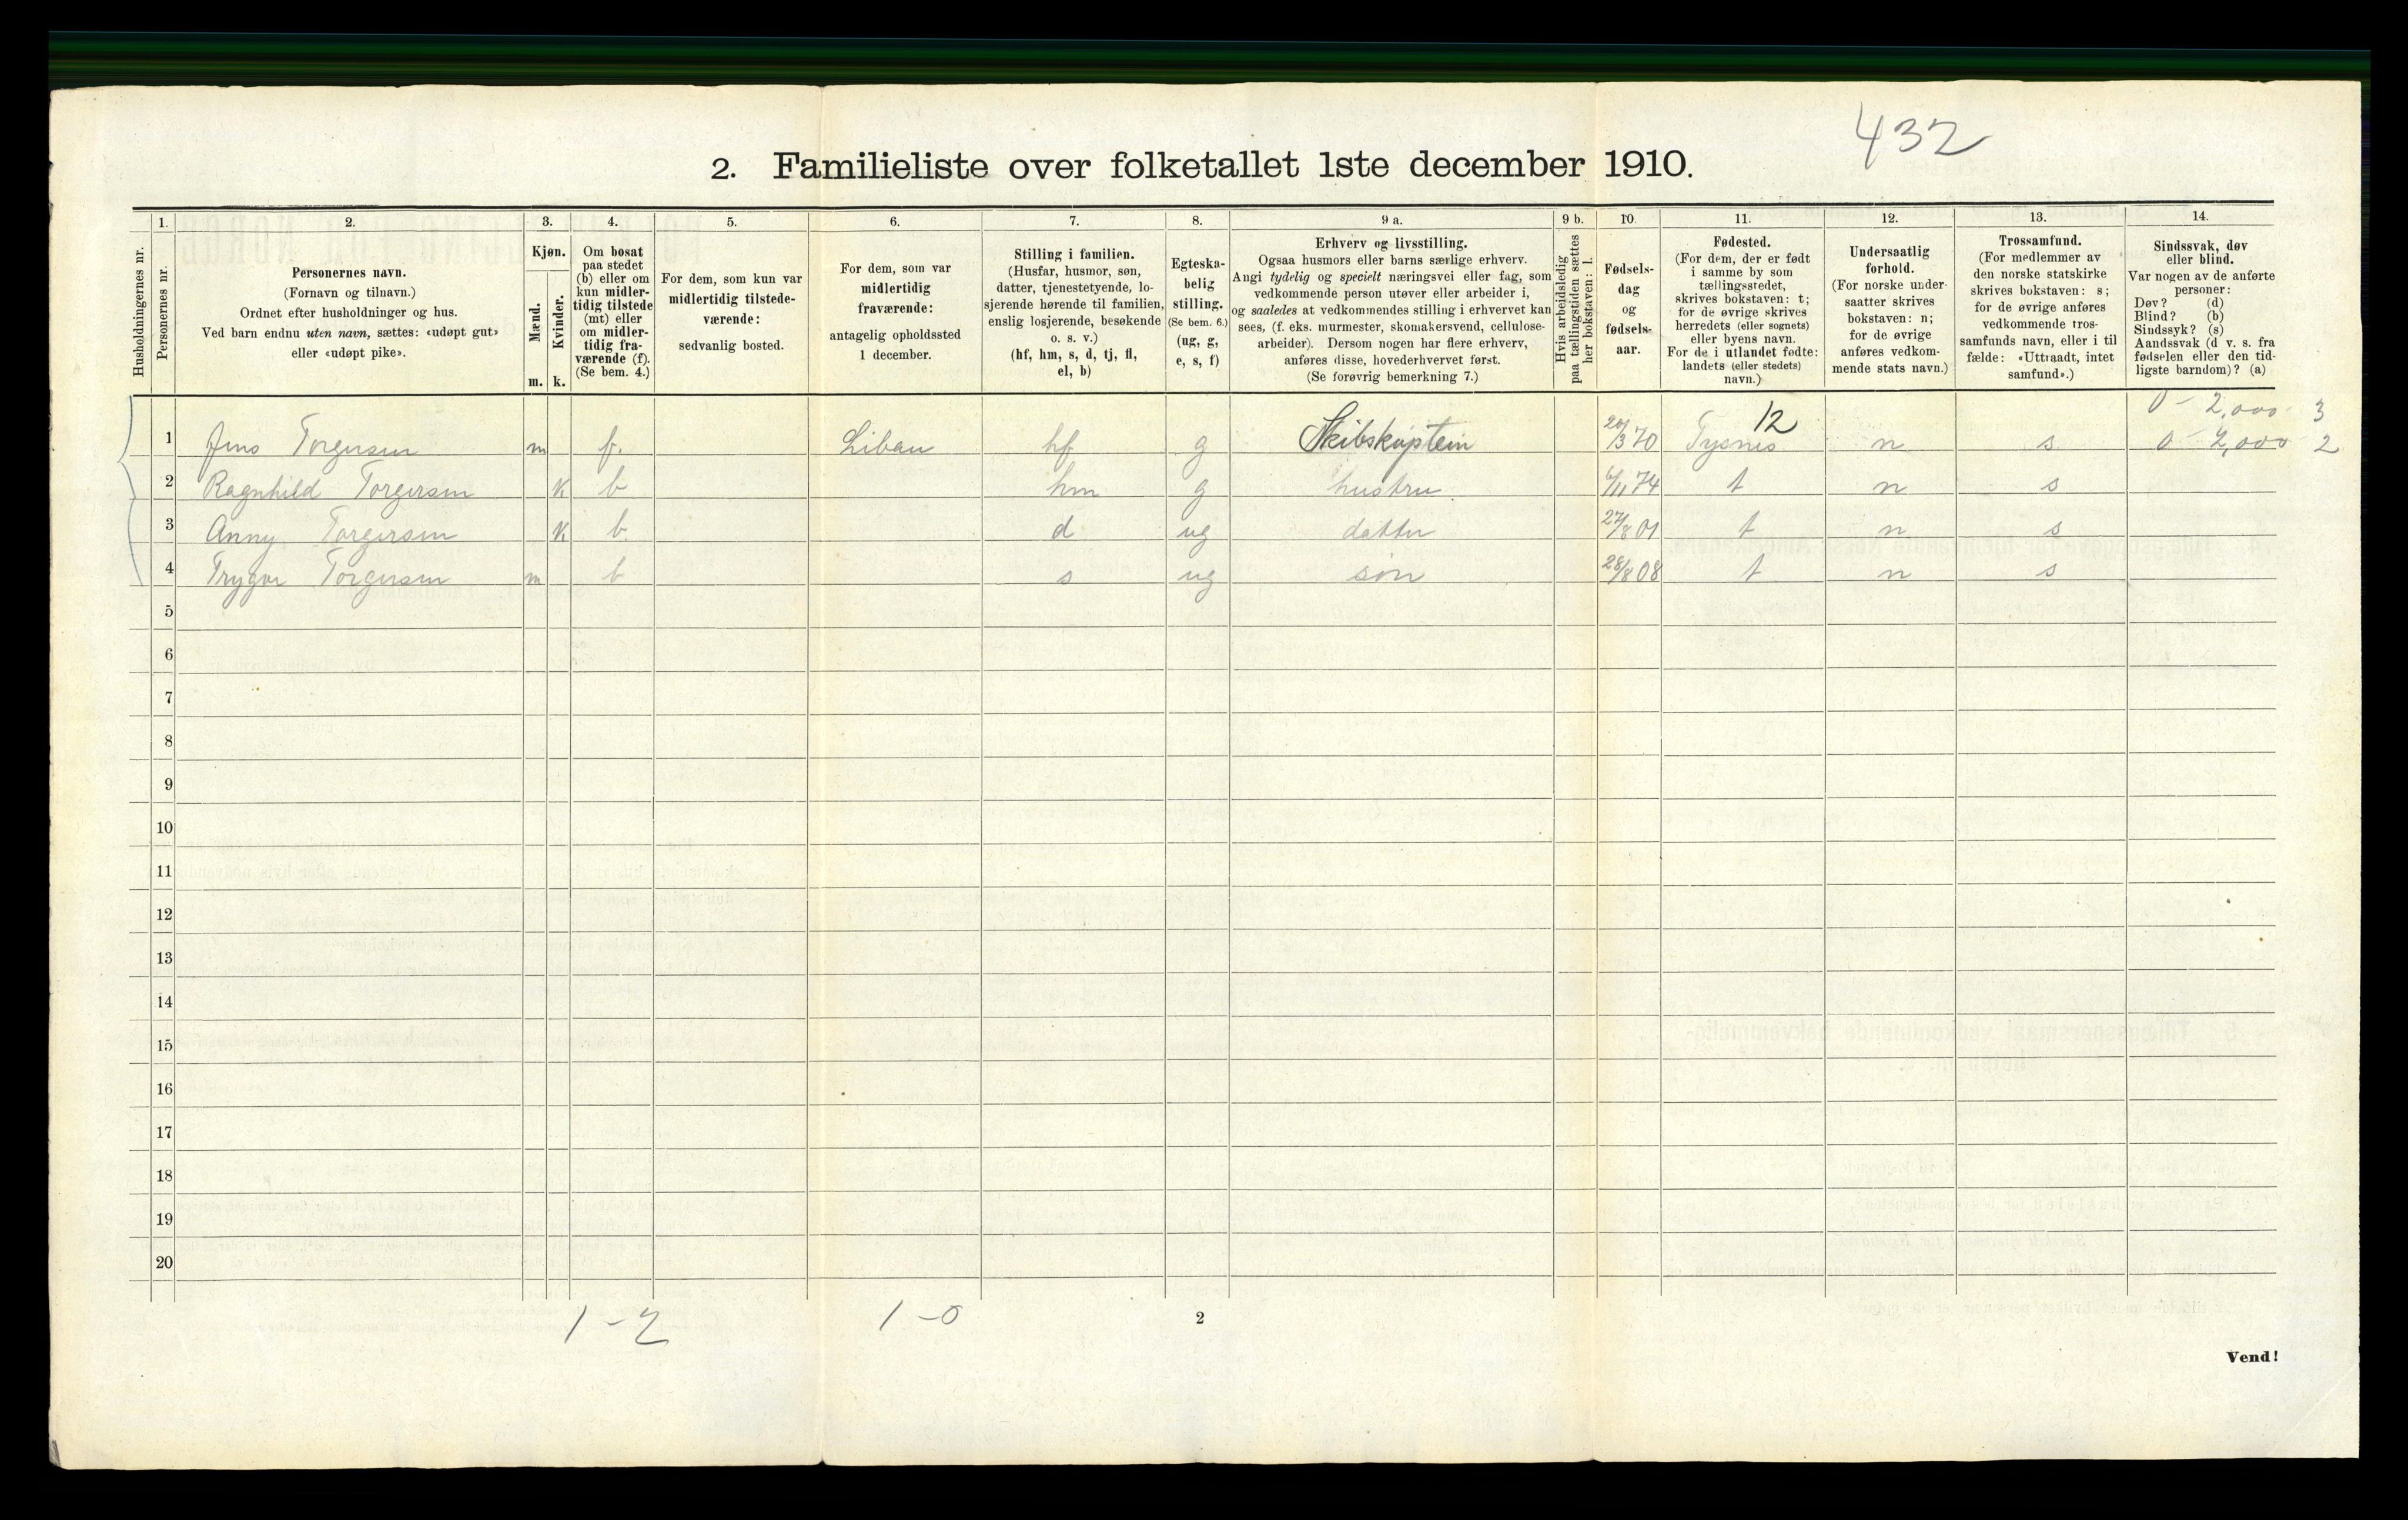 432
2. Familieliste over folketallet 1ste december 1910.
1. 2. 3. 4. 5. 6. 7. 8. 9 a. 9 b. 10. 11. 12. 13. 14.
Husholdningernes nr.
Personernes nr.
Personernes navn.
(Fornavn og tilnavn.)
Ordnet efter husholdninger og hus.
Ved barn endnu uten navn, sættes: «udøpt gut»
eller «udøpt pike».
Kjøn.
Mænd.
Kvinder.
m. k.
Om bosat
paa stedet
(b) eller om
kun midler-
tidig tilstede
(mt) eller
om midler-
tidig fra-
værende (f).
(Se bem. 4.)
For dem, som kun var
midlertidig tilstede-
værende:
sedvanlig bosted.
For dem, som var
midlertidig
fraværende:
antagelig opholdssted
1 december.
Stilling i familien.
(Husfar, husmor, søn,
datter, tjenestetyende, lo-
sjerende hørende til familien,
enslig losjerende, besøkende
o. s. v.)
(hf, hm, s, d, tj, fl,
el, b)
Egteska-
belig
stilling.
(Se bem. 6.)
(ug, g,
e, s, f)
Erhverv og livsstilling.
Ogsaa husmors eller barns særlige erhverv.
Angi tydelig og specielt næringsvei eller fag, som
vedkommende person utøver eller arbeider i,
og saaledes at vedkommendes stilling i erhvervet kan
sees, (f. eks. murmester, skomakersvend, cellulose-
arbeider). Dersom nogen har flere erhverv,
anføres disse, hovederhvervet først.
(Se forøvrig bemerkning 7.)
Hvis arbeidsledig
paa tællingstiden sættes
her bokstaven: l.
Fødsels-
dag
og
fødsels-
aar.
Fødested.
(For dem, der er født
i samme by som
tællingsstedet,
skrives bokstaven: t;
for de øvrige skrives
herredets (eller sognets)
eller byens navn.
For de i utlandet fødte:
landets (eller stedets)
navn.)
Undersaatlig
forhold.
(For norske under-
saatter skrives
bokstaven: n;
for de øvrige
anføres vedkom-
mende stats navn.)
Trossamfund.
(For medlemmer av
den norske statskirke
skrives bokstaven: s;
for de øvrige anføres
vedkommende tros-
samfunds navn, eller i til
fælde: «Uttraadt, intet
samfund».)
Sindssvak, døv
eller blind.
Var nogen av de anførte
personer:
Døv? (d)
Blind? (b)
Sindssyk? (s)
Aandssvak (d v. s. fra
fødselen eller den tid-
ligste barndom)? (a)
12 0 - 2,000 3
1 Jens Torgersen m f. Libau hf g Skibskaptein 20/3 70 Tysnes n s 0 - 2,000 2
2 Ragnhild Torgersen k b hm g hustru. 6/11 74 t n s
3 Anny Torgersen k b. d ug datter 27/8 01 t n s
4 Trygve Torgersen m b s ug søn 28/8 08 t n s
5
6
7
8
9
10
11
12
13
14
15
16
17
18
19
20
1 - 2 1 - 0 2
Vend!